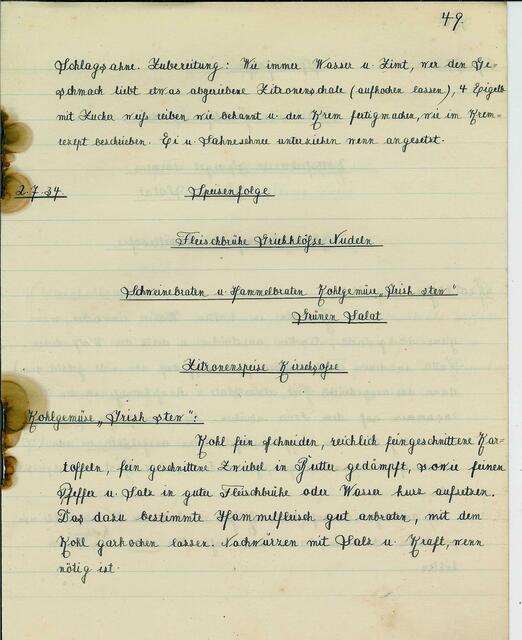 49.
Schlagsahne. Zubereitung: Wie immer Wasser u. Zimt, wer den Ge-
schmack liebt etwas abgeriebene Zitronenschale (aufkochen lassen), 4 Eigelb
mit Zucker weiß reiben wie bekannt u. den Krem fertigmachen, wie im Krem-
rezept beschrieben. Ei u. Sahneschnee unterziehen wenn angesetzt.
2.7.34. Speisenfolge
Fleischbrühe Grießklöße Nudeln
Schweinebraten u. Hammelbraten Kohlgemüse „Irish stew"
Grünen Salat
Zitronenspeise Kirschsoße
Kohlgemüse „Irish stew":
Kohl fein schneiden, reichlich feingeschnittene Kar-
toffeln, fein geschnittene Zwiebel in Butter gedämpft, sowie feinen
Pfeffer u. Salz in guter Fleischbrühe oder Wasser kurz aufsetzen.
Das dazu bestimmte Hammelfleisch gut anbraten, mit dem
Kohl garkochen lassen. Nachwürzen mit Salz u. Kraft, wenn
nötig ist.